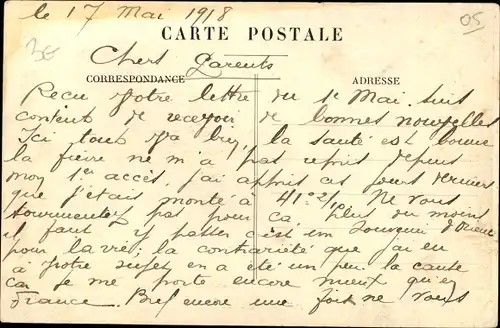 le 17 Mai 1918
05
CARTE POSTALE
Chers Parents
CORRESPONDANCE
ADRESSE
Recu Votre lettre du 1e Mai. suis
content de recevoir de bonnes nouvelles
Ici tout va bien, la santé est bonne
la fièvre ne m'a pas repris depuis
mon 1er accès, j'ai appris ces jours derniers
que j'étais monté à 41°2/10. Ne vous
tourmentez pas pour ça, plus ou moins
il faut y passer c'est un souvenir d'Orient
pour la vie; la contrariété que j'ai eu
à votre sujet en a été un peu la cause
car je me porte encore mieux qu'en
France. Bref encore une fois ne vous